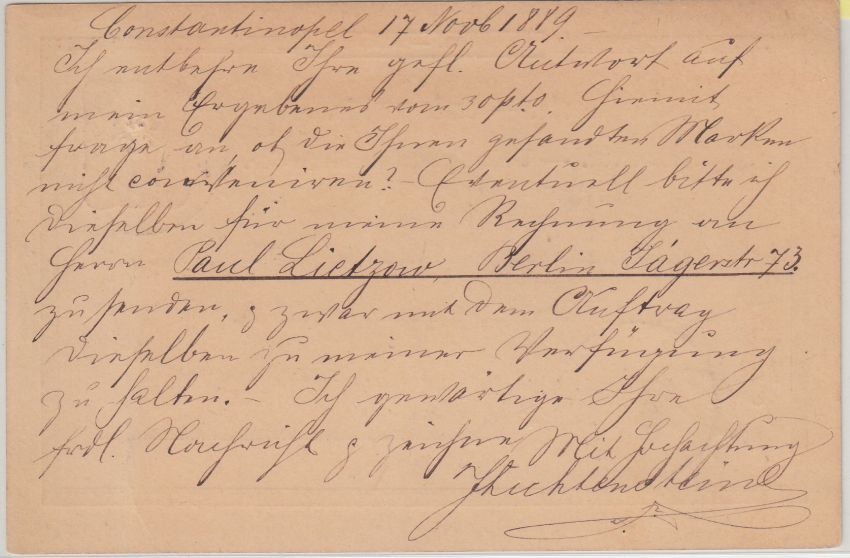 Constantinopel 17 Novb 1889
Ich entbehre Ihre gefl. Antwort auf
mein Ergebenes vom 30 pto. Hiemit
frage an, ob die Ihnen gesandten Marken
nicht conveniren? – Eventuell bitte ich
dieselben für meine Rechnung an
Herrn Paul Lietzow, Berlin Jägerstr 73.
zu senden, & zwar mit dem Auftrag
dieselben zu meiner Verfügung
zu halten. – Ich gewärtige Ihre
frdl. Nachricht & zeichne Mit Hochachtung
JLichtenstein